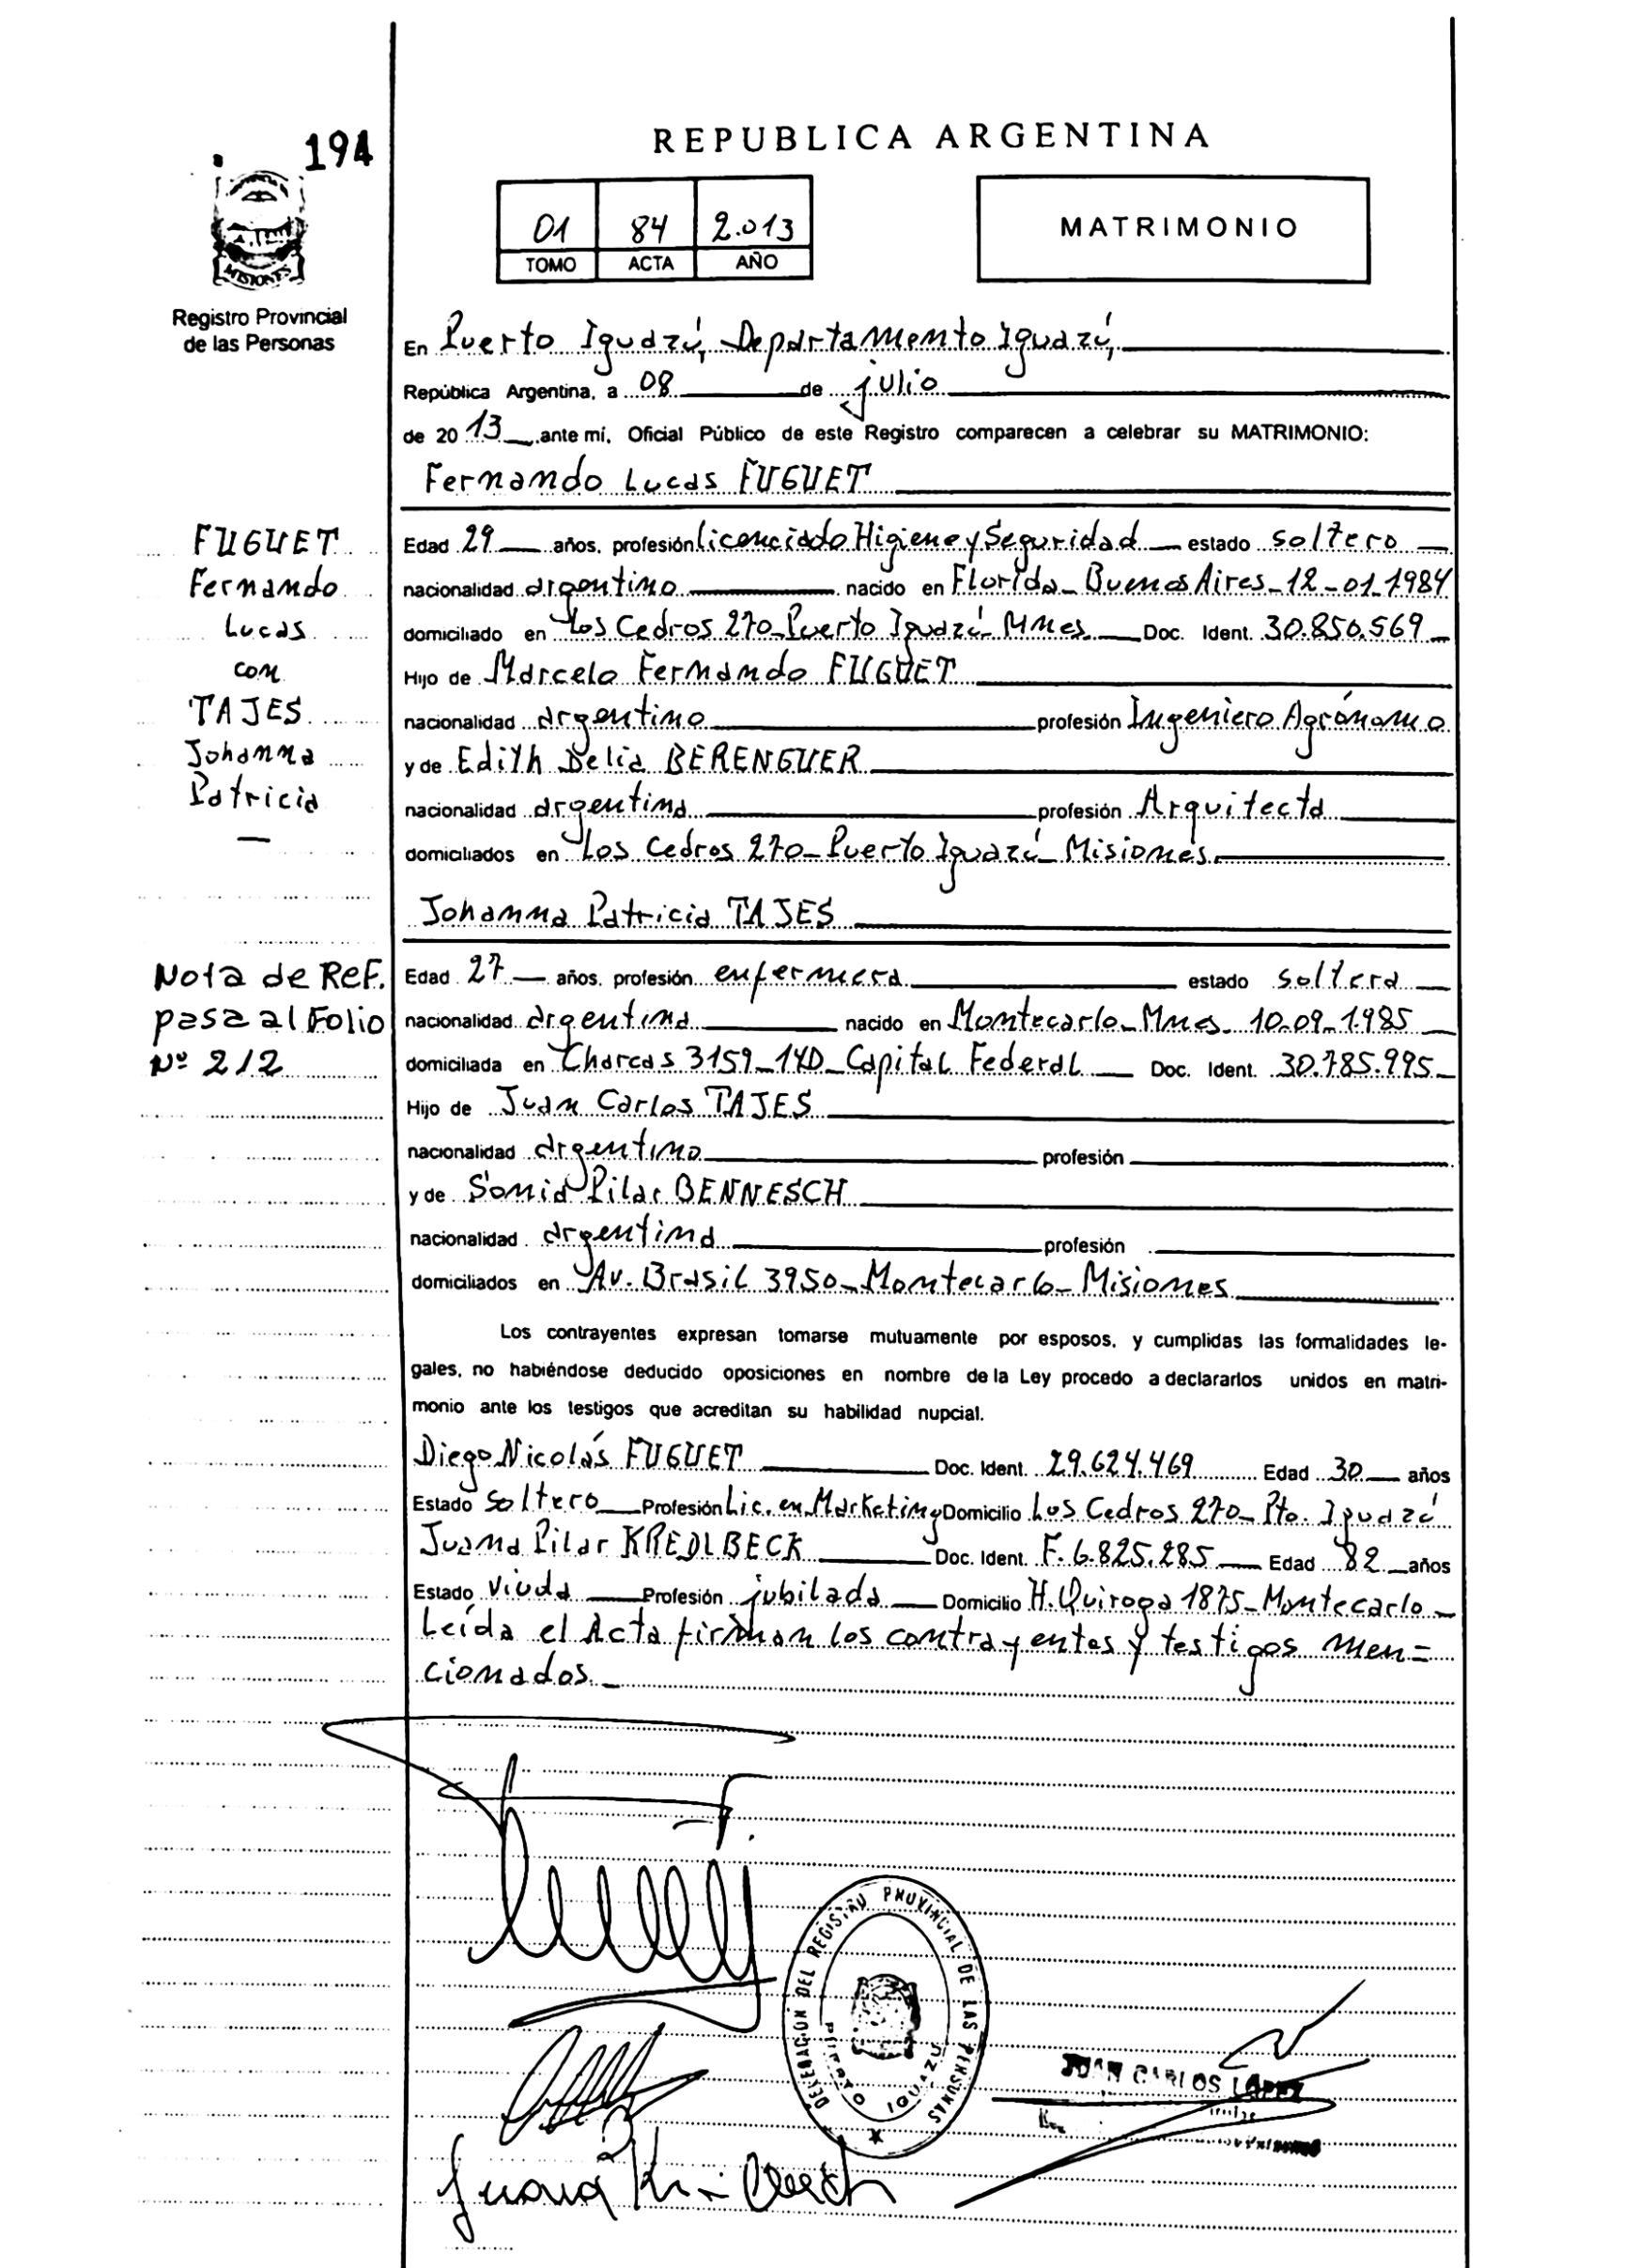 194
REPUBLICA ARGENTINA
MISIONES
Registro Provincial
de las Personas
01 84 2.013
TOMO ACTA AÑO
MATRIMONIO
En Puerto Iguazú, Departamento Iguazú,
República Argentina, a 08 de julio
de 20 13 ante mí, Oficial Público de este Registro comparecen a celebrar su MATRIMONIO:
Fernando Lucas FUGUET
FUGUET
Fernando
Lucas
con
TAJES
Johanna
Patricia
Edad 29 años, profesión licenciado Higiene y Seguridad estado soltero
nacionalidad argentino nacido en Florida - Buenos Aires - 12-01-1984
domiciliado en Los Cedros 270 - Puerto Iguazú - Mnes Doc. Ident. 30.850.569
Hijo de Marcelo Fernando FUGUET
nacionalidad argentino profesión Ingeniero Agrónomo
y de Edith Delia BERENGUER
nacionalidad argentina profesión Arquitecta
domiciliados en Los Cedros 270 - Puerto Iguazú - Misiones
Johanna Patricia TAJES
Nota de Ref.
pasa al Folio
Nº 212
Edad 27 años, profesión enfermera estado soltera
nacionalidad argentina nacido en Montecarlo - Mnes - 10-09-1985
domiciliada en Charcas 3159 - 14D - Capital Federal Doc. Ident. 30.785.995
Hijo de Juan Carlos TAJES
nacionalidad argentino profesión
y de Sonia Pilar BENNESCH
nacionalidad argentina profesión
domiciliados en Av. Brasil 3950 - Montecarlo - Misiones
Los contrayentes expresan tomarse mutuamente por esposos, y cumplidas las formalidades le-
gales, no habiéndose deducido oposiciones en nombre de la Ley procedo a declararlos unidos en matri-
monio ante los testigos que acreditan su habilidad nupcial.
Diego Nicolás FUGUET Doc. Ident. 29.624.469 Edad 30 años
Estado soltero Profesión Lic. en Marketing Domicilio Los Cedros 270 - Pto. Iguazú
Juana Pilar KREDLBECK Doc. Ident. F. 6.825.285 Edad 82 años
Estado viuda Profesión jubilada Domicilio H. Quiroga 1875 - Montecarlo -
Leída el Acta firman los contrayentes y testigos men=
cionados.
DELEGACION DEL REGISTRO PROVINCIAL DE LAS PERSONAS
PUERTO IGUAZU
JUAN CARLOS LOPEZ
Juana